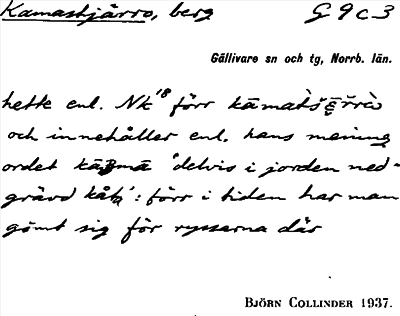 Kamastjårro, berg G 9 c 3
Gällivare sn och tg, Norrb. län.
hette enl. Nk 18 förr
och innehåller enl. hans mening
ordet 'delvis i jorden ned-
grävd kåta': förr i tiden har man
gömt sig för ryssarna där
BJÖRN COLLINDER 1937.